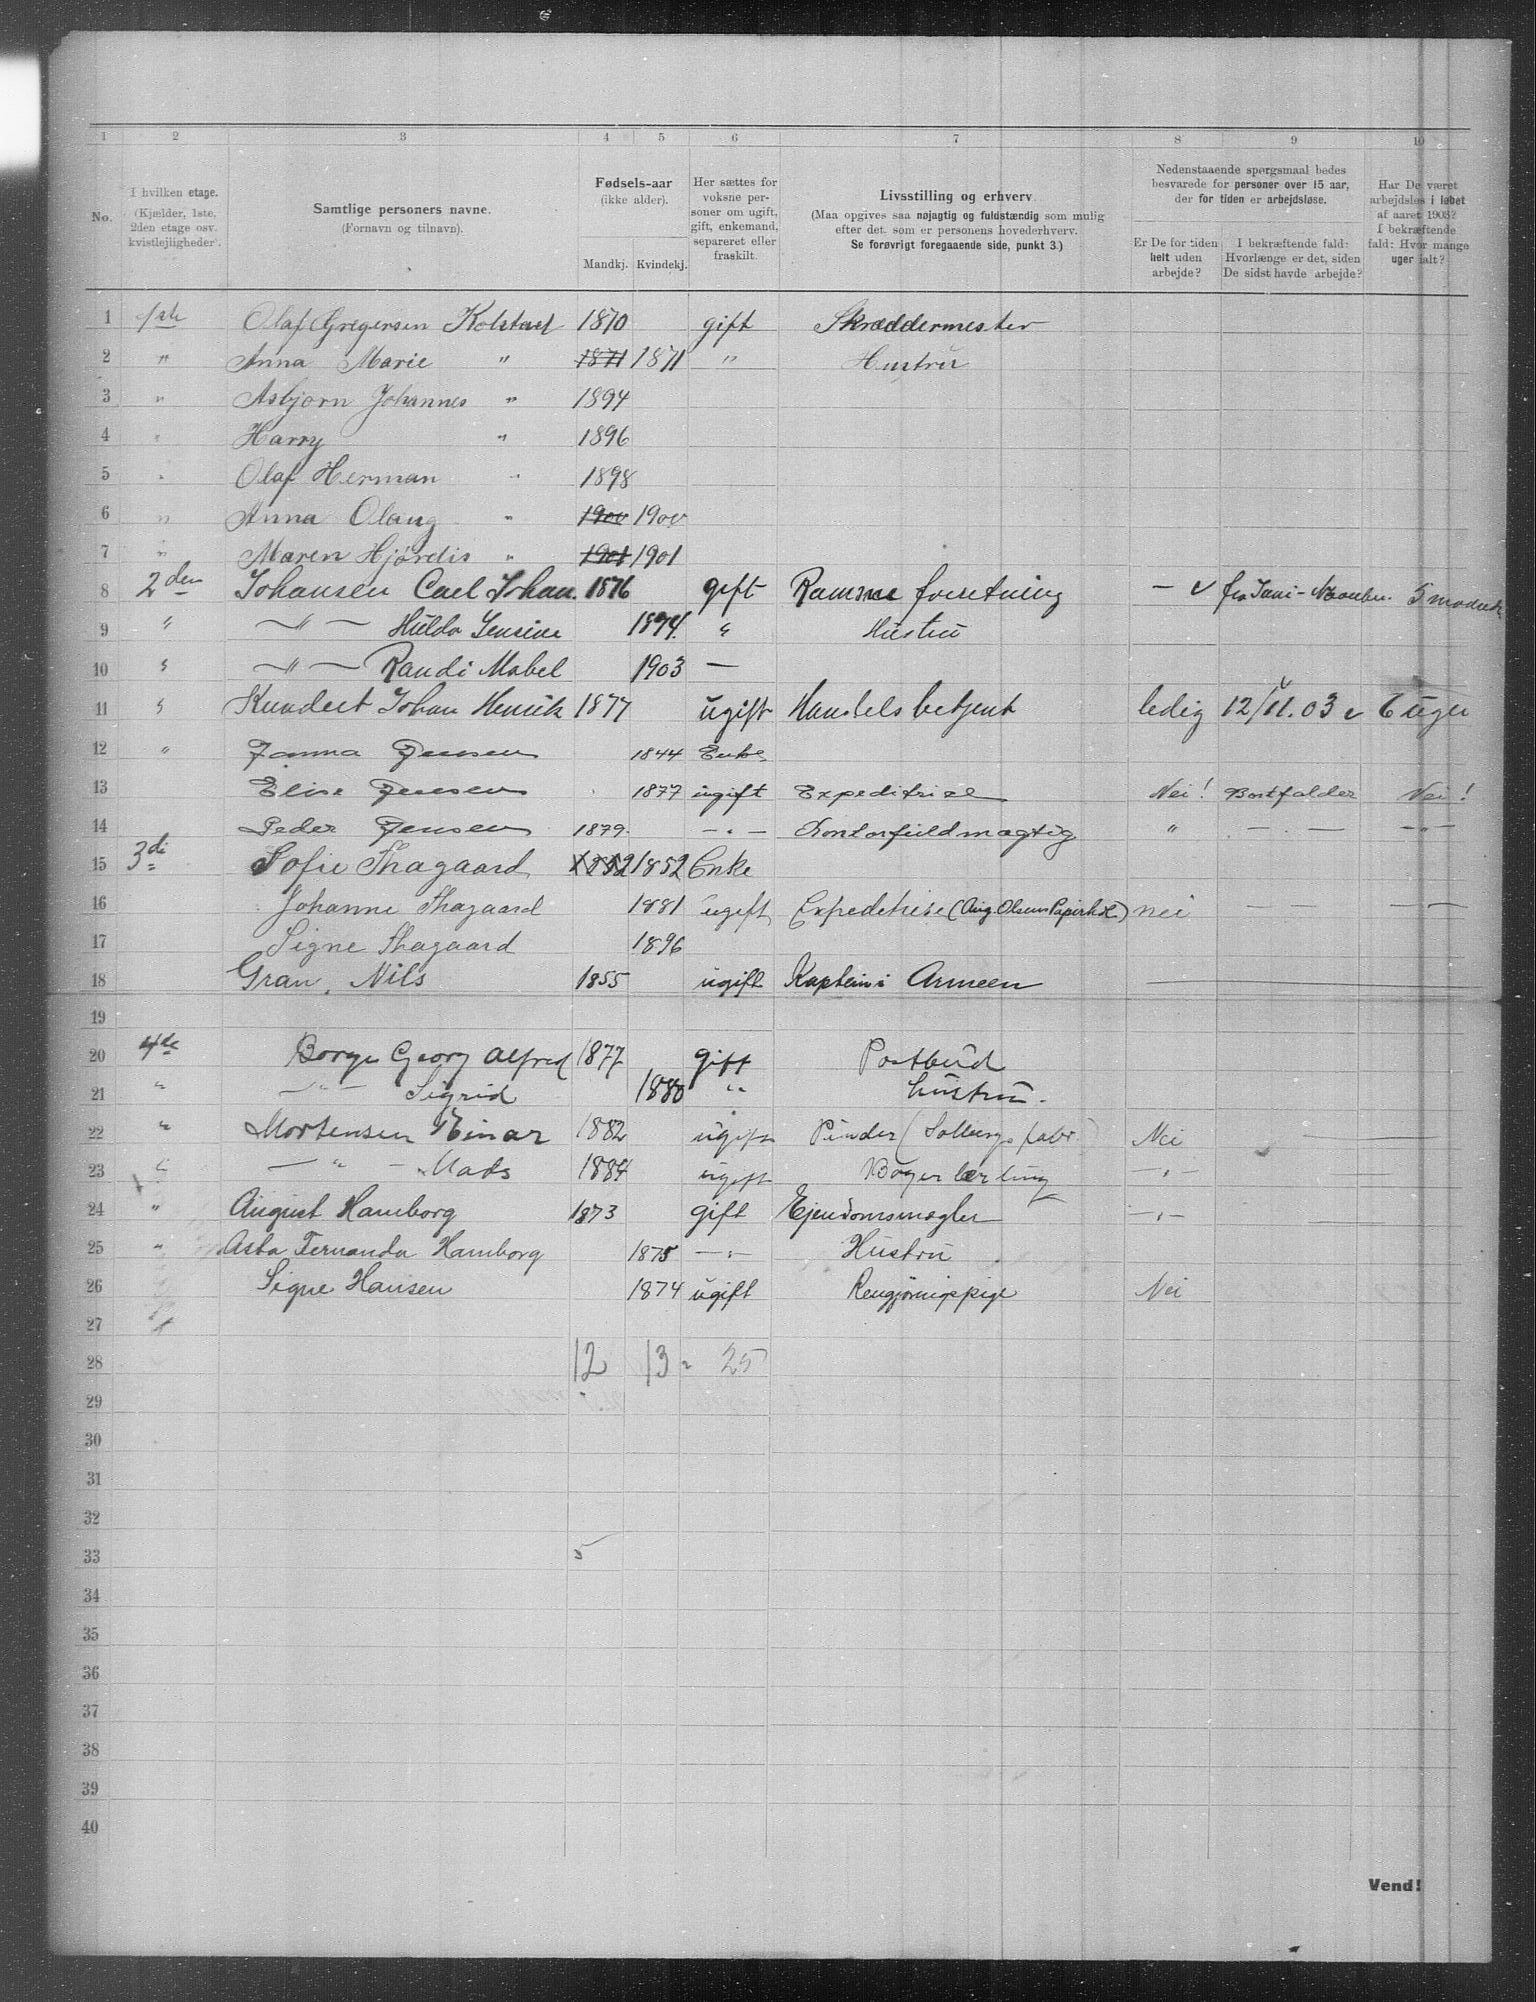 1 2 3 4 5 6 7 8 9 10
No. I hvilken etage. (Kjælder, 1ste, 2den etage osv. kvistlejligheder). Samtlige personers navne. (Fornavn og tilnavn). Fødsels-aar (ikke alder). Mandkj. Kvindekj. Her sættes for voksne personer om ugift, gift, enkemand, separeret eller fraskilt. Livsstilling og erhverv. (Maa opgives saa nøjagtig og fuldstændig som mulig efter det. som er personens hovederhverv. Se forøvrigt foregaaende side, punkt 3.) Nedenstaaende spørgsmaal bedes besvarede for personer over 15 aar, der for tiden er arbejdsløse. Er De for tiden helt uden arbejde? I bekræftende fald: Hvorlænge er det, siden De sidst havde arbejde? Har De været arbejdsløs i løbet af aaret 1903? I bekræftende fald: Hvor mange uger ialt?
1 1ste Olaf Gregersen Kolstad 1870 gift Skræddermester
2 " Anna Marie " 1871 1871 " Hustru
3 " Asbjørn Johannes " 1894
4 " Harry " 1896
5 " Olaf Herman " 1898
6 " Anna Olaug " 1900 1900
7 " Maren Hjørdis " 1901 1901
8 2den Johansen Carl Johan. 1876 gift Ramme forretning — v fra Juni - November. 5 moduli
9 " —"— Hulda Jensine 1874. " Hustru
10 " —"— Randi Mabel 1903 —
11 " Kundert Johan Henrik 1877 ugift Handelsbetjent ledig 12/11. 03 v 6 uger
12 " Janna Jensen 1844 Enke
13 Elise Jensen 1877 ugift Expeditrise Nei! Bortfalder Nei!
14 Peder Jensen 1879. —"— Kontorfuldmægtig " —"— —"—
15 3die Sofie Thagaard 1852 1852 Enke
16 Johanne Thagaard 1881 ugift Expeditrise (Aug. Olsens Papirhdl.) nei — — —
17 Signe Thagaard 1896
18 Gran, Nils 1855 ugift Kaptein i Armeen
19
20 4de Borge Georg Alfred 1877 gift Postbud
21 " —"— Sigrid 1880 " hustru.
22 " Mortensen Einar 1882 ugift Pinder (Solbergs fabr.) Nei
23 " —"— Mads 1884 ugift Bager lærling —"—
24 " August Hamborg 1873 gift Ejendomsmægler —"—
25 " Asta Fernanda Hamborg 1875 —"— Hustru
26 Signe Hansen 1874 ugift Rengjøringspige Nei
27
28 12 13 = 25
29
30
31
32
33 5
34
35
36
37
38
39
40
Vend!